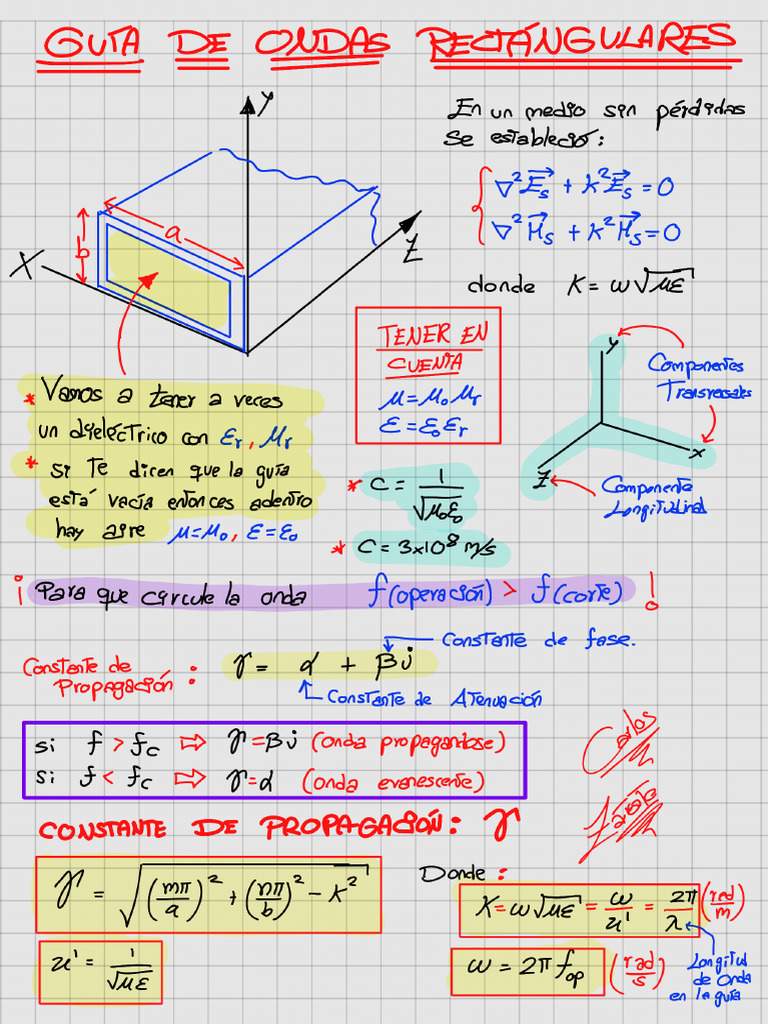 GUIA DE ONDAS RECTÁNGULARES
En un medio sin pérdidas
Se estableció:
∇²E⃗s + k²E⃗s = 0
∇²H⃗s + k²H⃗s = 0
donde K = ω√με
Y
a
b
X
Z
TENER EN
CUENTA
μ = μ₀ μr
ε = ε₀ εr
y
x
Z
Componentes
Transversales
Componente
Longitudinal
* Vamos a tener a veces
un dieléctrico con εr, μr
* si te dicen que la guía
está vacía entonces adentro
hay aire μ=μ₀, ε=ε₀
* C = 1/√μ₀ε₀
* C = 3x10⁸ m/s
¡ Para que circule la onda f(operación) > f(corte) !
Constante de
Propagación : γ = α + βj
Constante de fase.
Constante de Atenuación
si f > fc ⇨ γ = βj (onda propagandose)
si f < fc ⇨ γ = α (onda evanescente)
Carlos
Zárate
CONSTANTE DE PROPAGACIÓN: γ
γ = √(mπ/a)² + (nπ/b)² - K²
u' = 1/√με
Donde :
K = ω√με = ω/u' = 2π/λ (rad/m)
ω = 2π fop (rad/s)
Longitud
de Onda
en la guía